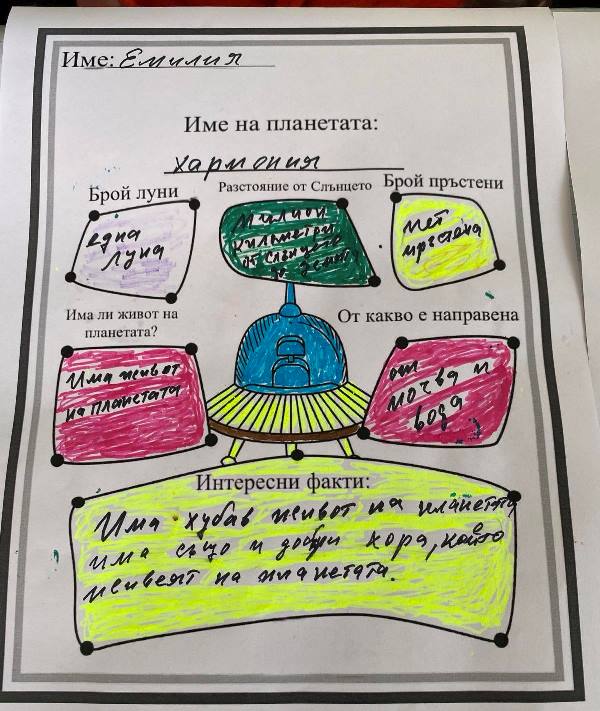 Име: Емилия
Име на планетата:
хармония
Брой луни
една
луна
Разстояние от Слънцето
Милион
километри
от слънцето
до земята
Брой пръстени
пет
пръстена
Има ли живот на
планетата?
Има живот
на планетата
От какво е направена
от
почва и
вода
Интересни факти:
Има хубав живот на планетата
има също и добри хора, които
живеят на планетата.